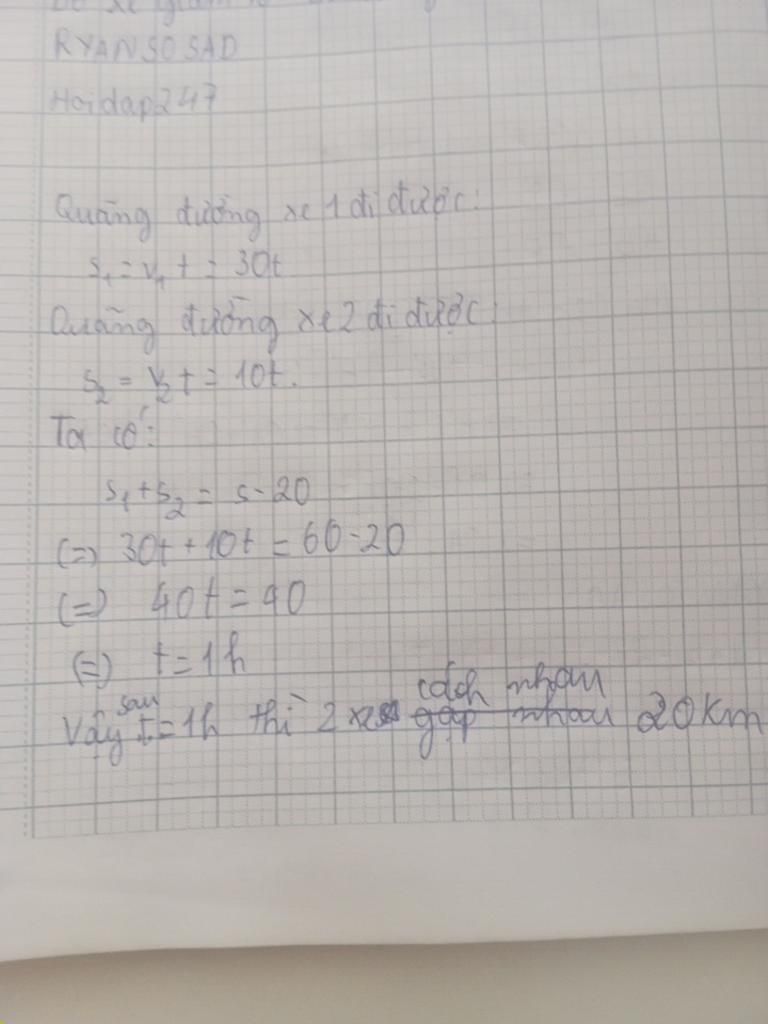 RYANSOSAD
Hoidap247
Quãng đường xe 1 đi được:
s₁ = v₁ t = 30t
Quãng đường xe 2 đi được:
s₂ = v₂ t = 10t.
Ta có:
s₁ + s₂ = s - 20
(=) 30t + 10t = 60 - 20
(=) 40t = 40
(=) t = 1h
Vậy sau t = 1h thì 2 xe gặp nhau cách nhau 20km